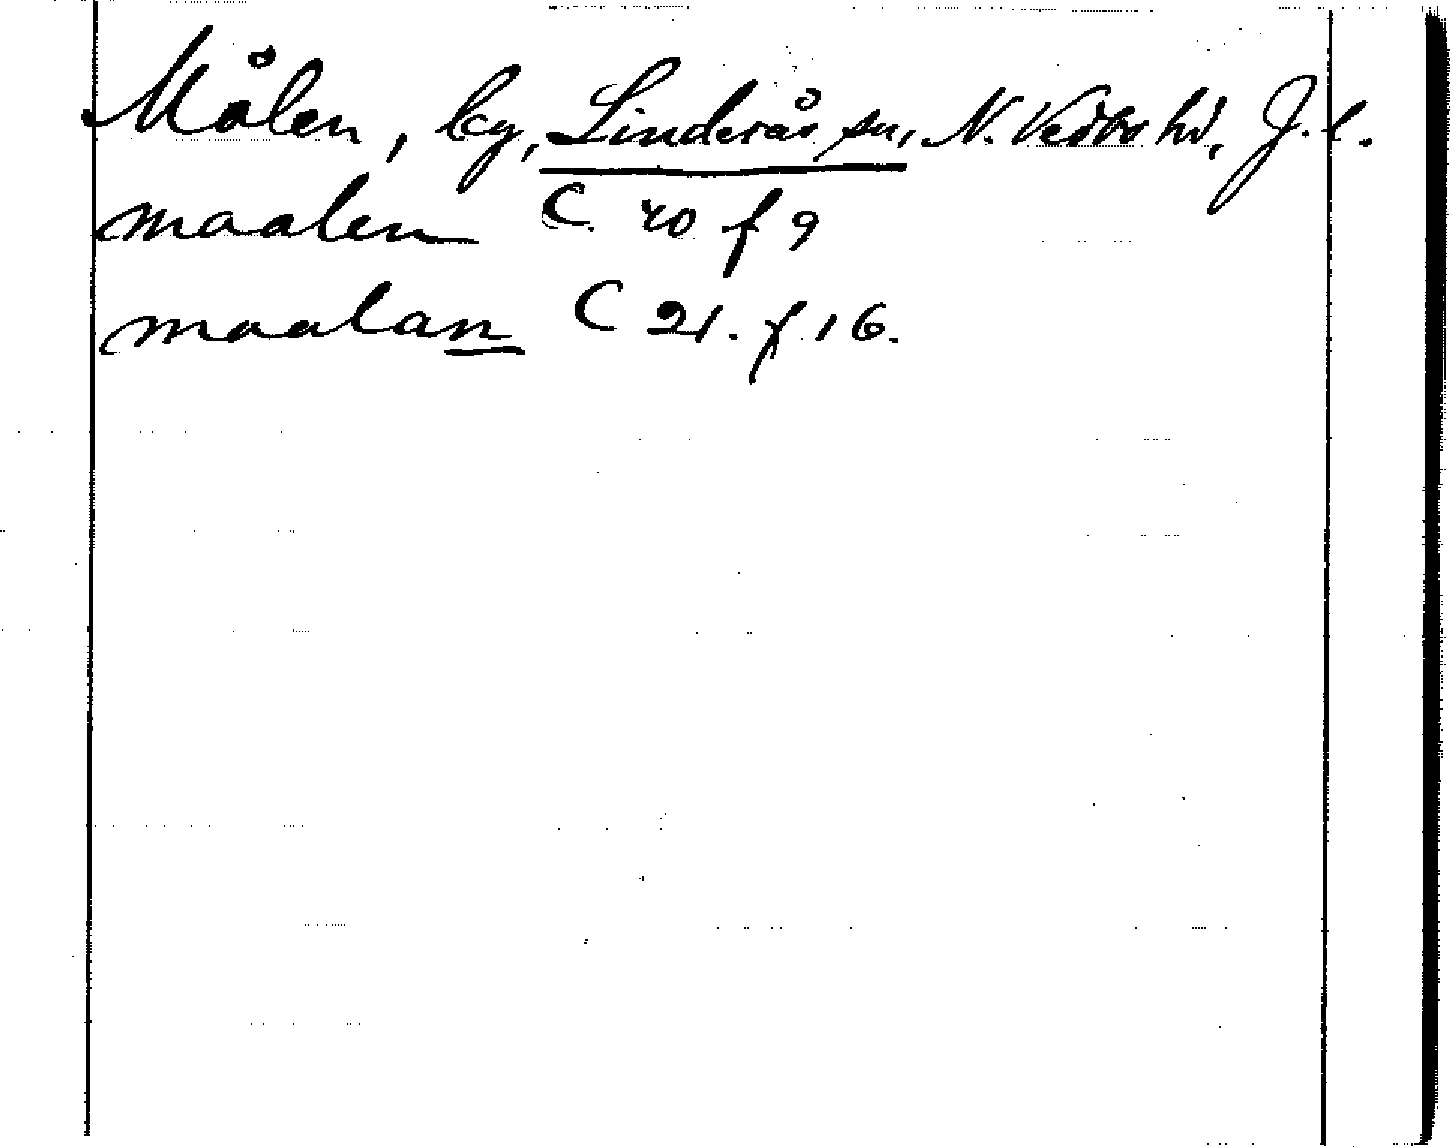 Målen, by, Linderås sn, N. Vedbo hd, J. l.
maalen C 40 f 9
maalan C 21. f. 16.